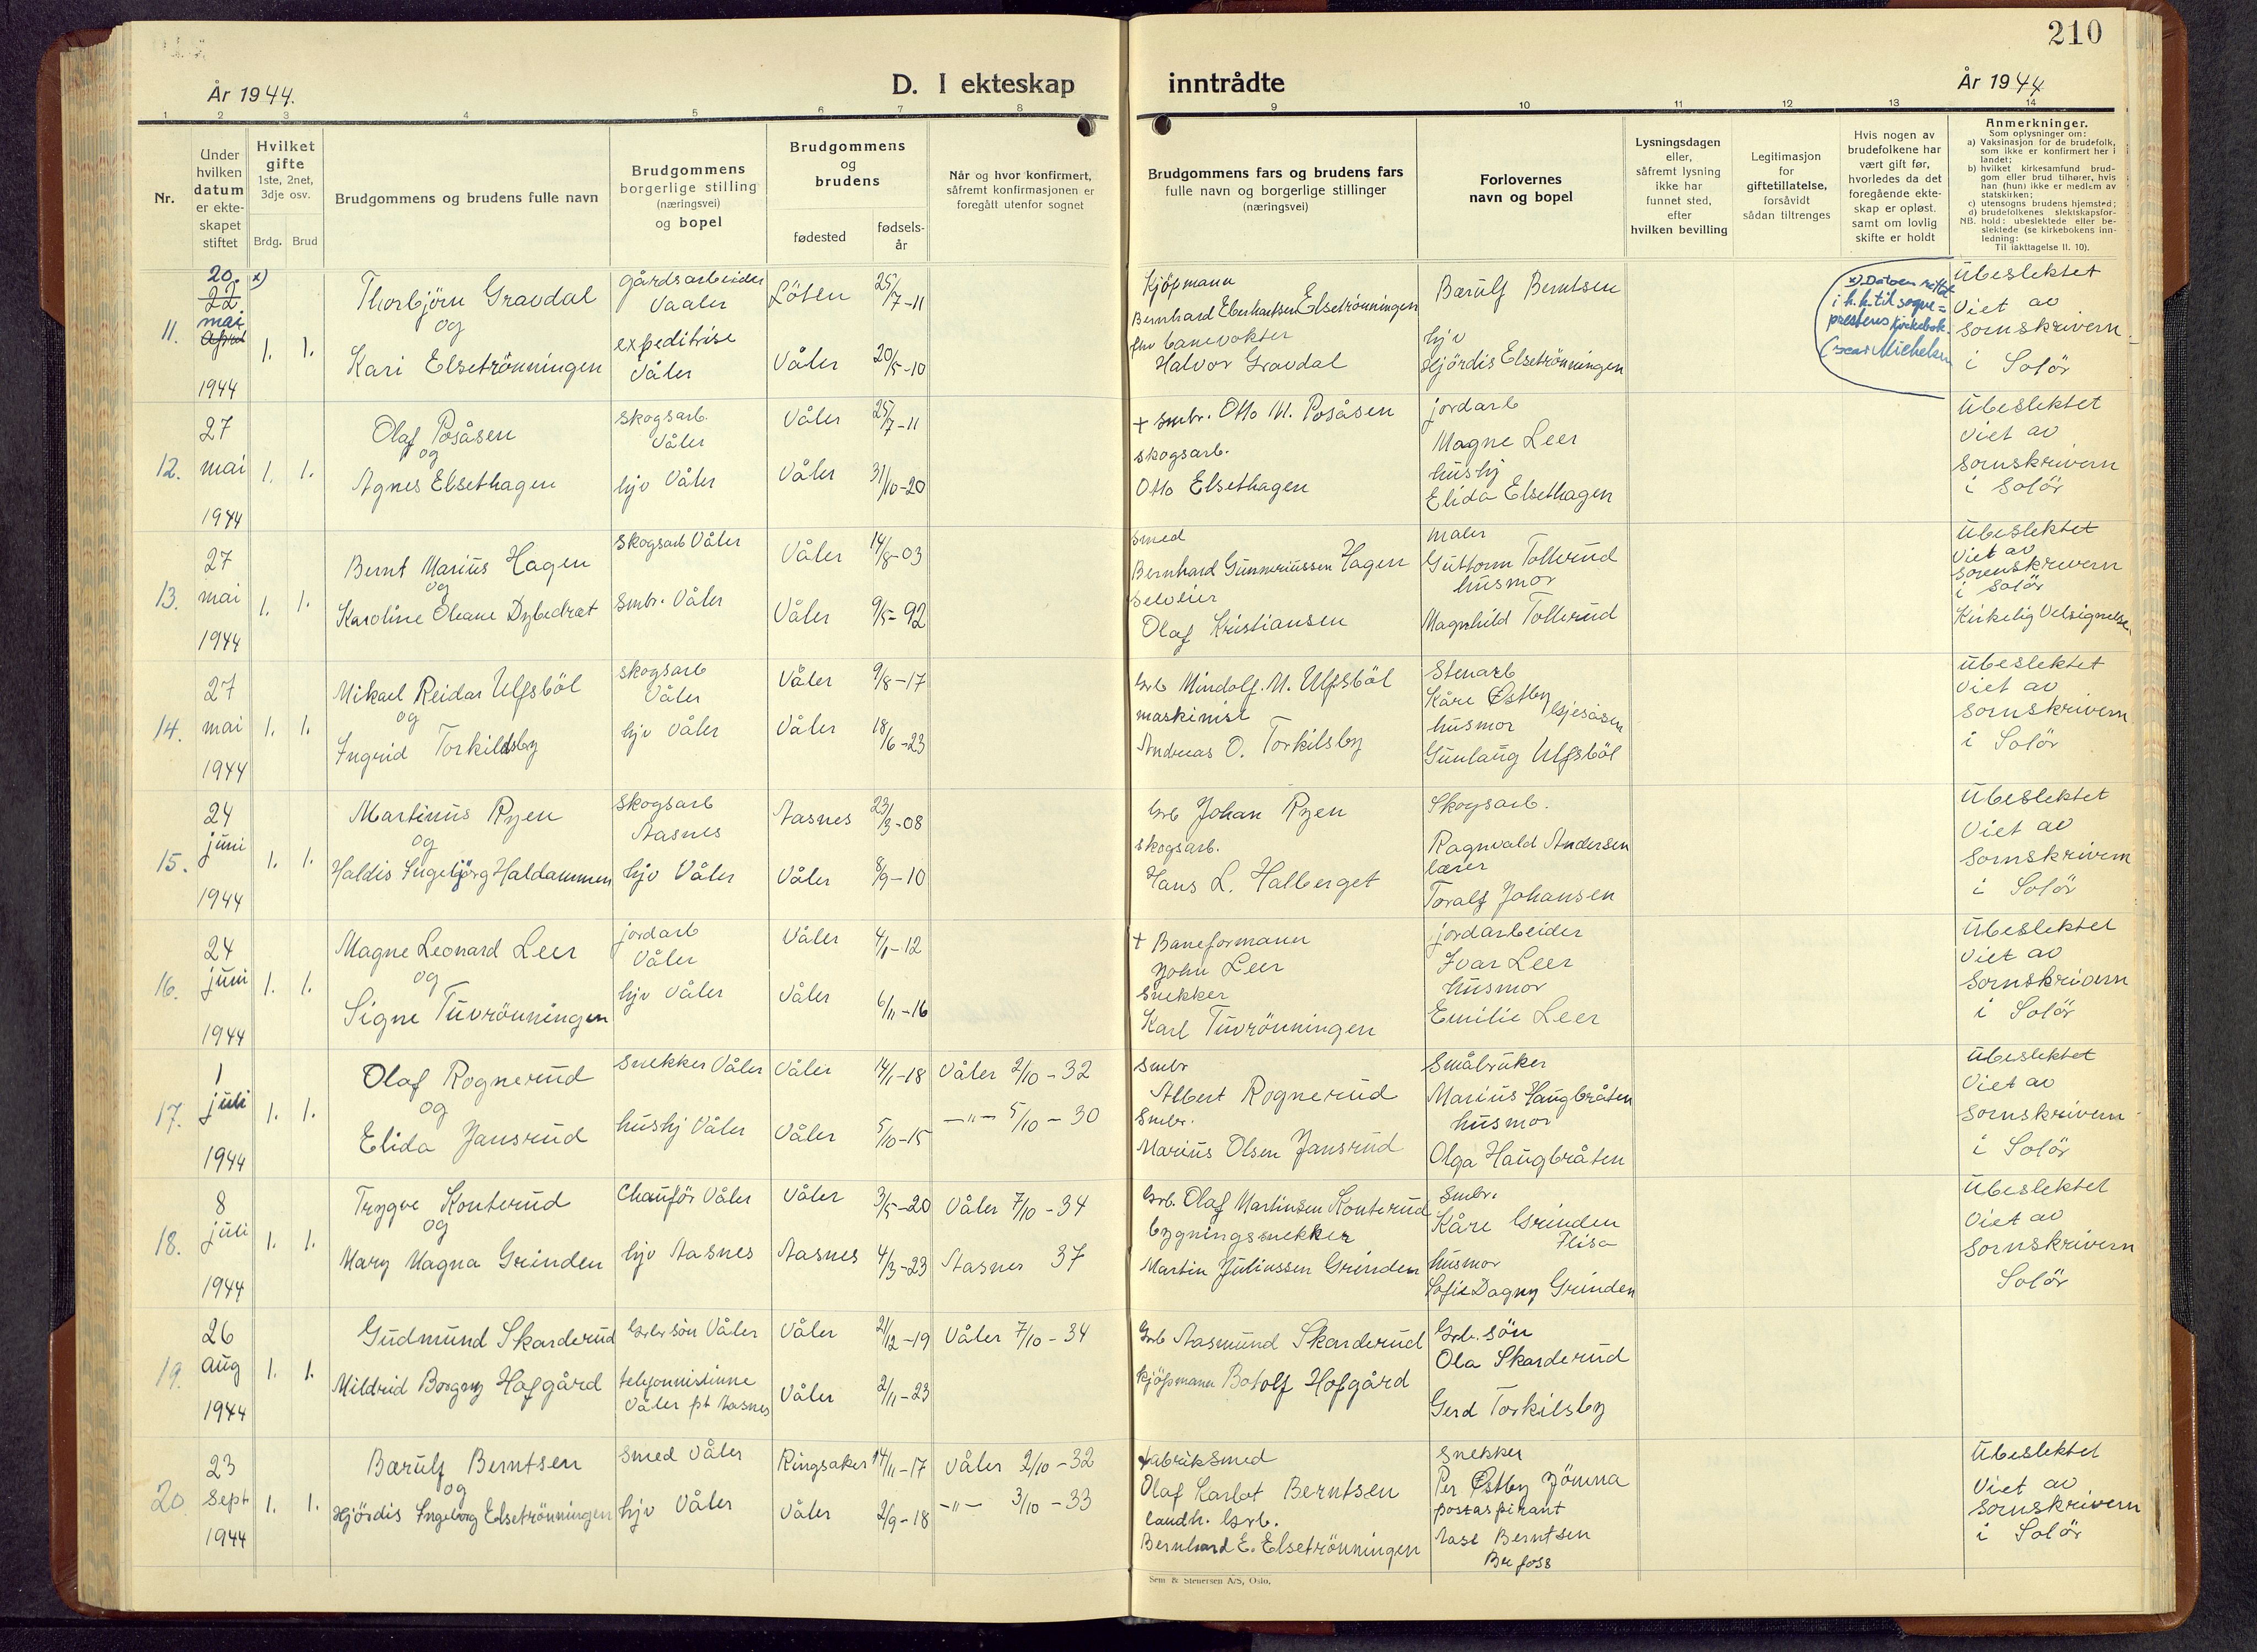 210
År 1944.
D. I ekteskap inntrådte
År 1944
1 2 3 4 5 6 7 8 9 10 11 12 13 14
Nr.
Under
hvilken
datum
er ekte-
skapet
stiftet
Hvilket
gifte
1ste, 2net,
3dje osv.
Brdg. Brud
Brudgommens og brudens fulle navn
Brudgommens
borgerlige stilling
(næringsvei)
og bopel
Brudgommens
og
brudens
fødested
fødsels-
år
Når og hvor konfirmert,
såfremt konfirmasjonen er
foregått utenfor sognet
Brudgommens fars og brudens fars
fulle navn og borgerlige stillinger
(næringsvei)
Forlovernes
navn og bopel
Lysningsdagen
eller,
såfremt lysning
ikke har
funnet sted,
efter
hvilken bevilling
Legitimasjon
for
giftetillatelse,
forsåvidt
sådan tiltrenges
Hvis nogen av
brudefolkene har
vært gift før,
hvorledes da det
foregående ekte-
skap er opløst.
samt om lovlig
skifte er holdt
Anmerkninger.
Som oplysninger om:
a) Vaksinasjon for de brudefolk,
som ikke er konfirmert her i
landet;
b) hvilket kirkesamfund brud-
gom eller brud tilhører, hvis
han (hun) ikke er medlem av
statskirken;
c) utensogns brudens hjemsted;
d) brudefolkenes slektskapsfor-
NB. hold: ubeslektede eller be-
slektede (se kirkebokens inn-
ledning:
Til iakttagelse II. 10).
11.
20. x)
22
mai
April
1944
1. 1.
Thorbjörn Gravdal
og
Kari Elsetrönningen
gårdsarbeider
Vaaler
expeditrise
Våler
Löten 25/7-11
Våler 20/5-10
Kjöpmann
Bernhard Eberhartsen Elsetrönningen
fhv banevokter
Halvor Gravdal
Bærulf Berntsen
hjv
Hjördis Elsetrönningen
x) Datoen rettet
i h.h. til sogne=
prestens kirkebok.
Michelsen
Übeslektet
Viet av
Sornskrivern
i Solör
12.
27
mai
1944
1. 1.
Olaf Posåsen
og
Agnes Elsethagen
Skogsarb.
Våler
hjv Våler
Våler 25/7-11
Våler 31/10-20
+ smbr. Otto M. Posåsen
skogsarb.
Otto Elsethagen
jordarb
Magne Leer
hushj
Elida Elsethagen
Übeslektet
Viet av
Sornskrivern
i Solör
13.
27
mai
1944
1. 1.
Bernt Marius Hagen
og
Karoline Oleane Dybedræt
Skogsarb Våler
Smbr. Våler
Våler 14/8-03
Våler 9/5-92
Smed
Bernhard Gunneriussen Hagen
Selveier
Olaf Kristiansen
Maler
Guttorm Tollerud
husmor
Magnhild Tollerud
Übeslektet
Viet av
Sorenskrivern
i Solör
Kirkelig Velsignelse.
14.
27
mai
1944
1. 1.
Mikael Reidar Ulfsböl
og
Ingrid Torkildsby
skogsarb
Våler
hjv Våler
Våler 9/8-17
Våler 18/6-23
Grb Mindolf. M. Ulfsböl
maskinist
Andreas O. Torkilsby
Stenarb
Kåre Østby Gjesåsen
husmor
Gunlaug Ulfsböl
Übeslektet
Viet av
Sornskrivern
i Solör
15.
24
juni
1944
1. 1.
Martinus Ryen
og
Haldis Ingebjörg Haldammen
Skogsarb
Aasnes
hjv Våler
Aasnes 23/3-08
Våler 8/9-10
Grb Johan Ryen
skogsarb.
Hans L. Halberget
Skogsarb.
Ragnvald Andersen
lærer
Toralf Johansen
Übeslektet
Viet av
Sornskrivern
i Solör
16.
24
juni
1944
1. 1.
Magne Leonard Leer
og
Signe Tuvrönningen
jordarb
Våler
hjv Våler
Våler 4/1-12
Våler 6/11-16
+ Baneformann
John Leer
Snekker
Karl Tuvrönningen
jordarbeider
Ivar Leer
husmor
Emilie Leer
Übeslektet
Viet av
Sornskrivern
i Solör
17.
1
juli
1944
1. 1.
Olaf Rognerud
og
Elida Jansrud
Snekker Våler
hushj Våler
Våler 14/1-18
Våler 5/10-15
Våler 2/10-32
—"— 5/10-30
Smbr
Albert Rognerud
Smbr.
Marius Olsen Jansrud
Småbruker
Marius Haugbråten
husmor
Olga Haugbråten
Übeslektet
Viet av
Sornskrivern
i Solör
18.
8
juli
1944
1. 1.
Trygve Konterud
og
Mary Magna Grinden
Chauför Våler
hjv Aasnes
Våler 3/5-20
Aasnes 4/3-23
Våler 7/10-34
Aasnes 37
Grb. Olaf Martinsen Konterud
bygningssnekker
Martin Juliussen Grinden
Smbr.
Kåre Grinden
Flisa
husmor
Sofie Dagny Grinden
Übeslektet
Viet av
Sornskrivern
Solör
19.
26
aug
1944
1. 1.
Gudmund Skarderud
Mildrid Borgny Hofgård
Grbr sön Våler
telefonnistinne
Våler pt Aasnes
Våler 21/12-19
Våler 2/11-23
Våler 7/10-34
Grb Aasmund Skarderud
Kjöpmann Botolf Hofgård
Grb. sön
Ola Skarderud
Gerd Torkilsby
20.
23
Sept
1944
1. 1.
Bærulf Berntsen
og
Hjördis Ingeborg Elsetrönningen
Smed Våler
hjv Våler
Ringsaker 14/11-17
Våler 2/9-18
Våler 2/10-32
—"— 3/10-33
fabriksmed
Olaf Karlot Berntsen
landh. Grb.
Bernhard E. Elsetrönningen
Snekker
Per Østby Jömna
postaspirant
Aase Berntsen
Übeslektet
Viet av
Sornskrivern
i Solör
Sem & Stenersen A/S, Oslo.